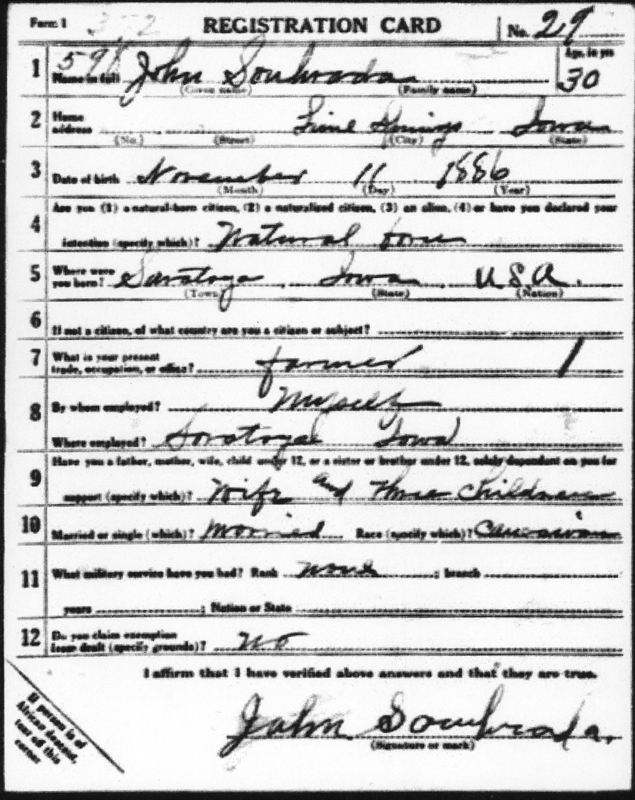 Form 1 REGISTRATION CARD No. 29
1 598 Name in full John Souhrada Age, in yrs 30
(Given name) (Family name)
2 Home address Lime Springs Iowa
(No.) (Street) (City) (State)
3 Date of birth November 11 1886
(Month) (Day) (Year)
4 Are you (1) a natural-born citizen, (2) a naturalized citizen, (3) an alien, (4) or have you declared your
intention (specify which)? Natural born
5 Where were you born? Saratoga Iowa U.S.A.
(Town) (State) (Nation)
6 If not a citizen, of what country are you a citizen or subject?
7 What is your present trade, occupation, or office? farmer 1
8 By whom employed? Myself
Where employed? Saratoga Iowa
9 Have you a father, mother, wife, child under 12, or a sister or brother under 12, solely dependent on you for
support (specify which)? Wife and three children
10 Married or single (which)? Married Race (specify which)? Caucasian
11 What military service have you had? Rank none ; branch
years ; Nation or State
12 Do you claim exemption from draft (specify grounds)? no
I affirm that I have verified above answers and that they are true.
John Souhrada.
(Signature or mark)
If person is of
African descent,
tear off this
corner